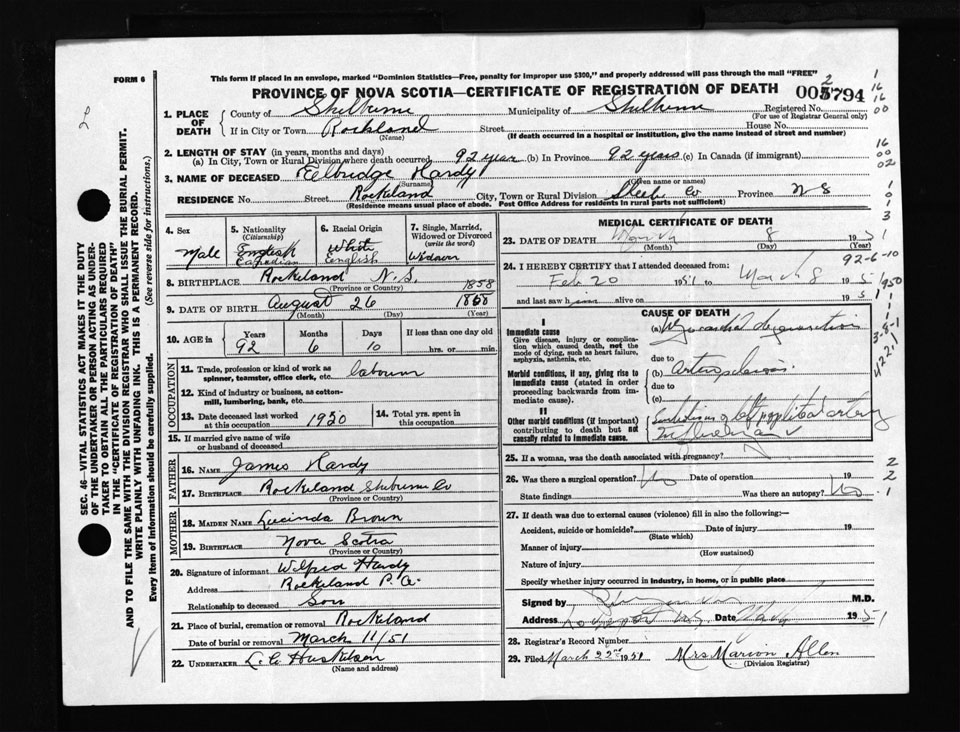 FORM 6
This form if placed in an envelope, marked "Dominion Statistics—Free, penalty for improper use $300," and properly addressed will pass through the mail "FREE"
PROVINCE OF NOVA SCOTIA—CERTIFICATE OF REGISTRATION OF DEATH
1. PLACE OF DEATH
County of Shelburne Municipality of Shelburne Registered No.
(For use of Registrar General only)
If in City or Town Rockland Street House No.
(Name) (If death occurred in a hospital or institution, give the name instead of street and number)
2. LENGTH OF STAY (in years, months and days)
(a) In City, Town or Rural Division where death occurred 92 year (b) In Province 92 years (c) In Canada (if immigrant)
3. NAME OF DECEASED Elbridge Hardy
(Surname) (Given name or names)
RESIDENCE No. Street Rockland City, Town or Rural Division Co Province N S
(Residence means usual place of abode. Post Office Address for residents in rural parts not sufficient)
4. Sex
Male
5. Nationality
(Citizenship)
English
Canadian
6. Racial Origin
White
English
7. Single, Married, Widowed or Divorced
(write the word)
Widower
8. BIRTHPLACE Rockland N.S.
(Province or Country)
1858
9. DATE OF BIRTH August 26
(Month) (Day) (Year)
10. AGE in
Years Months Days If less than one day old
92 6 10 hrs. or min.
OCCUPATION
11. Trade, profession or kind of work as spinner, teamster, office clerk, etc.
12. Kind of industry or business, as cotton-mill, lumbering, bank, etc.
13. Date deceased last worked at this occupation 1920
14. Total yrs. spent in this occupation
15. If married give name of wife or husband of deceased
FATHER
16. NAME James Hardy
17. BIRTHPLACE Rockland Shelburne Co
(Province or Country)
MOTHER
18. MAIDEN NAME Lucinda Brown
19. BIRTHPLACE Nova Scotia
(Province or Country)
20. Signature of informant Wilfred Hardy
Address Rockland
Relationship to deceased Son
21. Place of burial, cremation or removal Rockland
Date of burial or removal March 11/51
22. UNDERTAKER
(Name and address)
MEDICAL CERTIFICATE OF DEATH
23. DATE OF DEATH March 8 1951
(Month) (Day) (Year)
92-6-10
24. I HEREBY CERTIFY that I attended deceased from:
Feb 20 1951 to March 8 1951
and last saw him alive on 195
CAUSE OF DEATH
I
Immediate cause
Give disease, injury or complication which caused death, not the mode of dying, such as heart failure, asphyxia, asthenia, etc.
(a) Myocardial degeneration
due to
Morbid conditions, if any, giving rise to immediate cause (stated in order proceeding backwards from immediate cause).
(b) Arteriosclerosis
due to
(c)
II
Other morbid conditions (if important) contributing to death but not causally related to immediate cause.
25. If a woman, was the death associated with pregnancy?
26. Was there a surgical operation? No Date of operation 195
State findings Was there an autopsy? No
27. If death was due to external causes (violence) fill in also the following:—
Accident, suicide or homicide? Date of injury 195
(State which)
Manner of injury
(How sustained)
Nature of injury
Specify whether injury occurred in industry, in home, or in public place
Signed by M.D.
Address Date 1951
28. Registrar's Record Number
29. Filed March 22nd 1951 Mrs Marion Allen
(Division Registrar)
SEC. 46—VITAL STATISTICS ACT MAKES IT THE DUTY
OF THE UNDERTAKER OR PERSON ACTING AS UNDER-
TAKER TO OBTAIN ALL THE PARTICULARS REQUIRED
IN THE "CERTIFICATE OF REGISTRATION OF DEATH"
AND TO FILE THE SAME WITH THE DIVISION REGISTRAR WHO SHALL ISSUE THE BURIAL PERMIT.
WRITE PLAINLY WITH UNFADING INK. THIS IS A PERMANENT RECORD.
Every item of information should be carefully supplied. (See reverse side for instructions.)